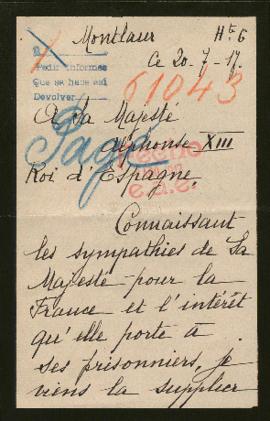 Montlaur Hte G
Ce 20-7-17.
Pedir informes
Que se hace así
Devolver
61043
A Sa Majesté
Alphonse XIII
Roi d'Espagne,
Connaissant
les sympathies de Sa
Majesté pour la
France et l'intérêt
qu'elle porte à
ses prisonniers, je
viens la supplier